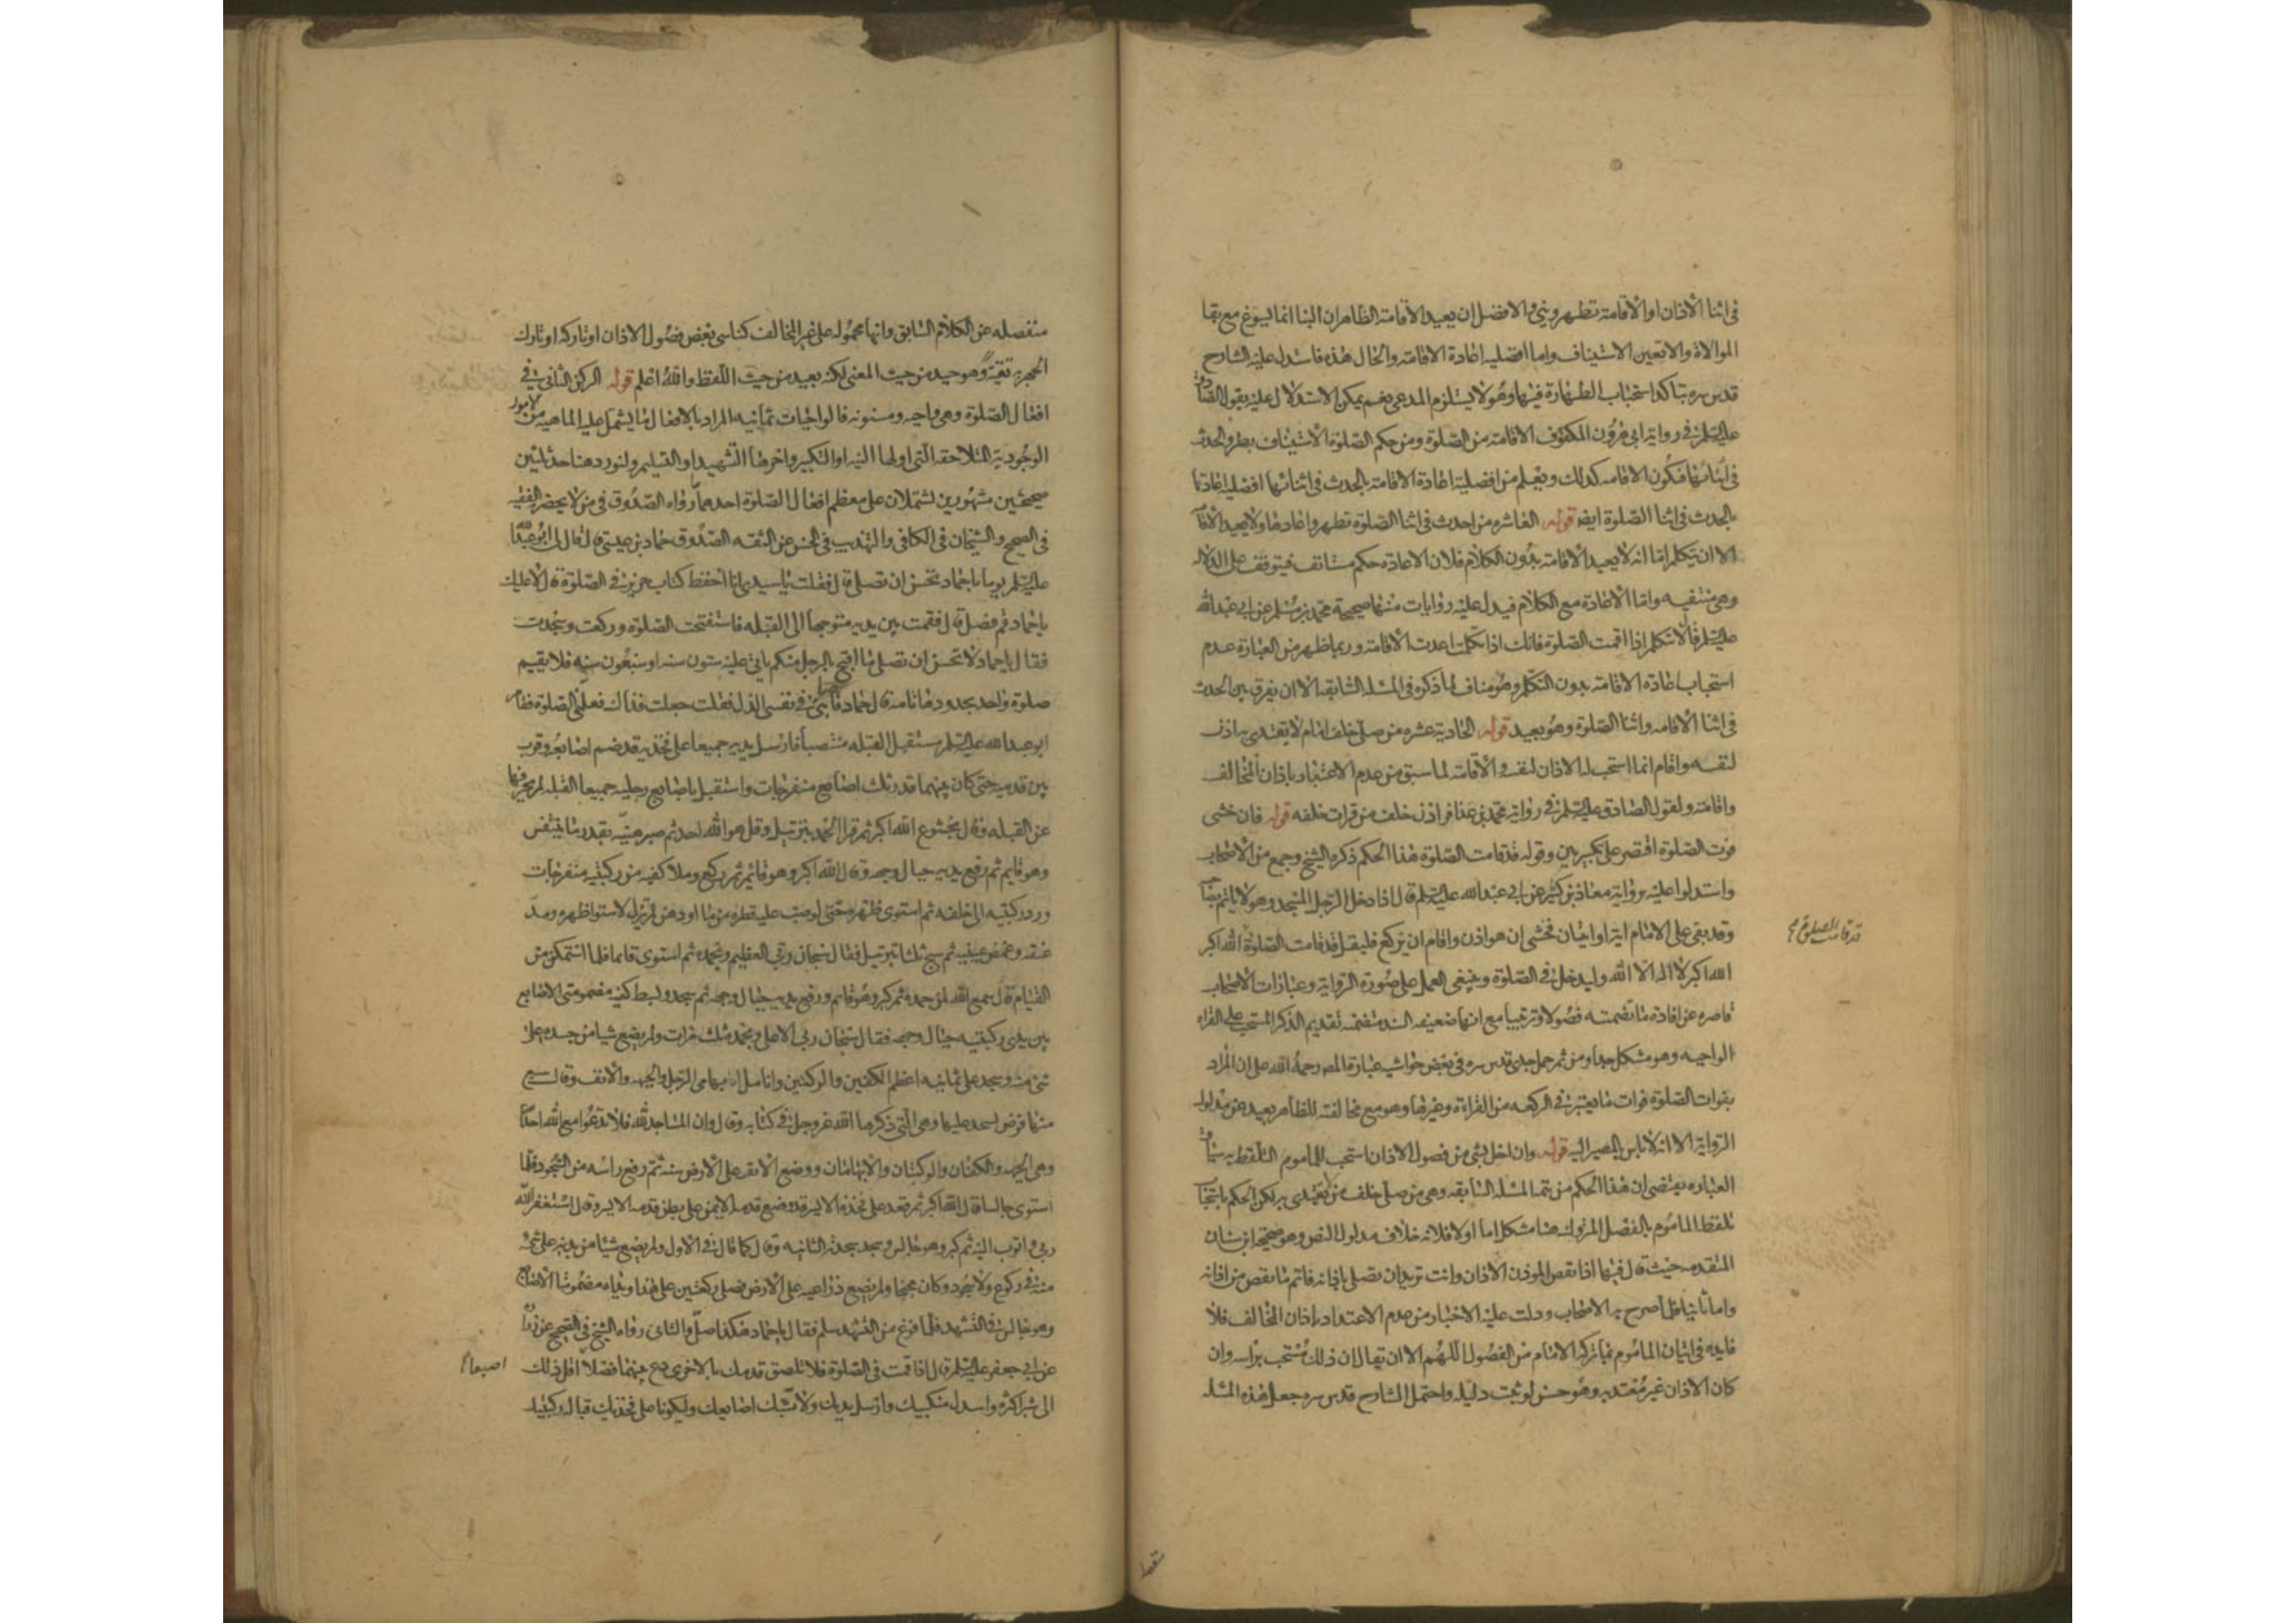 في اثنا الاذان او الاقامة تطهر وبنى والافضل ان يعيد الاقامة الظاهر ان البنا انما يسوغ مع بقا
الموالاة والا تعين الاستيناف واما افضلية اعادة الاقامة والحال هذه فاستدل عليه الشارح
قدس سره بتاكد استحباب الطهارة فيها وهو لا يستلزم المدعى نعم يمكن الاستدلال عليه بقول الصادق
عليه السلم في رواية ابي هرون المكفوف الاقامة من الصلوة ومن حكم الصلوة الاستيناف بطرو الحدث
في اثنائها فتكون الاقامه كذلك ويعلم من افضلية اعادة الاقامة بالحدث في اثنائها افضلية اعادتها
بالحدث في اثنا الصلوة ايضا قوله العاشره من احدث في اثنا الصلوة تطهر واعادها ولا يعيد الاقامة
الا ان يتكلم اما انه لا يعيد الاقامة بدون الكلام فلان الاعاده حكم مستانف فيتوقف على الدلاله
وهي منتفيه واما الاعادة مع الكلام فيدل عليه روايات منها صحيحة محمد بن مسلم عن ابي عبد الله
عليه السلم قال لا تتكلم اذا اقمت الصلوة فانك اذا تكلمت اعدت الاقامة وربما ظهر من العبارة عدم
استحباب اعادة الاقامة بدون التكلم وهو مناف لما ذكره في المسئله السابقه الا ان يفرق بين الحدث
في اثنا الاقامه واثنا الصلوة وهو بعيد قوله الحادية عشره من صلى خلف امام لا يقتدى به اذن
لنفسه واقام انما استحب له الاذان لنفسه والاقامة لما سبق من عدم الاعتداد باذان المخالف
واقامته ولقول الصادق عليه السلم في رواية محمد بن عذافر اذن خلف من قرات خلفه قوله فان خشى
فوت الصلوة اقتصر على تكبيرتين وقوله قد قامت الصلوة هذا الحكم ذكره الشيخ وجمع من الاصحاب
واستدلوا عليه برواية معاذ بن كثير عن ابي عبد الله عليه السلم قال اذا دخل الرجل المسجد وهو لا ياتم بصاحبه
وقد بقى على الامام اية او ايتان فخشى ان هو اذن واقام ان يركع فليقل قد قامت الصلوة الله اكبر
قد قامت الصلوة
الله اكبر لا اله الا الله وليدخل في الصلوة وينبغى العمل على صورة الرواية وعبارات الاصحاب
قاصره عن افادة ما تضمنته فصولا وترتيبا مع انها ضعيفه السند متضمنه تقديم الذكر المستحب على القراه
الواجبه وهو مشكل جدا ومن ثم حمل جدى قدس سره في بعض حواشيه عبارة المص رحمه الله على ان المراد
بفوات الصلوة فوات ما يعتبر في الركعه من القراءة وغيرها وهو مع مخالفته للظاهر بعيد عن مدلول
الرواية الا انه لا باس بالمصير اليه قوله وان اخل بشئ من فصول الاذان استحب للماموم التلفظ به سياق
العباره يقتضى ان هذا الحكم من تتمة المسئله السابقه وهي من صلى خلف من لا يقتدى به لكن الحكم باستحباب
تلفظ الماموم بالفصل المتروك هنا مشكل اما اولا فلانه خلاف مدلول النص وهو صحيحة ابن سنان
المتقدمه حيث قال فيها اذا نقص الموذن الاذان وانت تريد ان تصلى باذانه فاتم ما نقص من اذانه
واما ثانيا فلما صرح به الاصحاب ودلت عليه الاخبار من عدم الاعتداد باذان المخالف فلا
فايده في اتيان الماموم بما تركه الامام من الفصول اللهم الا ان يقال ان ذلك مستحب براسه وان
كان الاذان غير معتد به وهو حسن لو ثبت دليله واحتمل الشارح قدس سره جعل هذه المسئله
منفصله عن الكلام السابق وانها محموله على غير المخالف كناسى بعض فصول الاذان او تاركه او تارك
الجهر به تقية وهو جيد من حيث المعنى لكنه بعيد من حيث اللفظ والله اعلم قوله الركن الثاني في
افعال الصلوة وهي واجبه ومسنونه فالواجبات ثمانيه المراد بالافعال ما يشتمل عليه الماهيه من الامور
الوجودية المتلاحقه التي اولها النيه او التكبير واخرها التشهد او التسليم ولنورد هنا حديثين
صحيحين مشهورين يشتملان على معظم افعال الصلوة احدهما رواه الصدوق في من لا يحضره الفقيه
في الصحيح والشيخان في الكافي والتهذيب في الحسن عن الثقه الصدوق حماد بن عيسى قال قال لى ابو عبد الله
عليه السلم يوما يا حماد تحسن ان تصلى قال فقلت يا سيدى انا احفظ كتاب حريز في الصلوة قال لا عليك
يا حماد قم فصل قال فقمت بين يديه متوجها الى القبله فاستفتحت الصلوه وركعت وسجدت
فقال يا حماد لا تحسن ان تصلى ما اقبح بالرجل منكم ياتى عليه ستون سنه او سبعون سنه فلا يقيم
صلوة واحدة بحدودها تامة قال حماد فاصابنى في نفسى الذل فقلت جعلت فداك فعلمنى الصلوة فقام
ابو عبد الله عليه السلم مستقبل القبله منتصبا فارسل يديه جميعا على فخذيه قد ضم اصابعه وقرب
بين قدميه حتى كان بينهما قدر ثلث اصابع منفرجات واستقبل باصابع رجليه جميعا القبله لم يحرفها
عن القبله وقال بخشوع الله اكبر ثم قرا الحمد بترتيل وقل هو الله احد ثم صبر هنيه بقدر ما يتنفس
وهو قايم ثم رفع يديه حيال وجهه وقال الله اكبر وهو قايم ثم ركع وملا كفيه من ركبتيه منفرجات
ورد ركبتيه الى خلفه ثم استوى ظهره حتى لو صب عليه قطره من ما او دهن لم تزل لاستوا ظهره ومد
عنقه وغمض عينيه ثم سبح ثلثا بترتيل فقال سبحان ربي العظيم وبحمده ثم استوى قايما فلما استمكن من
القيام قال سمع الله لمن حمده ثم كبر وهو قايم ورفع يديه حيال وجهه ثم سجد وبسط كفيه مضمومتى الاصابع
بين يدى ركبتيه حيال وجهه فقال سبحان ربي الاعلى وبحمده ثلث مرات ولم يضع شيا من جسده على
شئ منه وسجد على ثمانيه اعظم الكفين والركبتين وانامل ابهامى الرجلين والجبهه والانف وقال سبع
منها فرض يسجد عليها وهي التي ذكرها الله عز وجل في كتابه وقال وان المساجد لله فلا تدعوا مع الله احدا
وهي الجبهه والكفان والركبتان والابهامان ووضع الانف على الارض سنه ثم رفع راسه من السجود فلما
استوى جالسا قال الله اكبر ثم قعد على فخذه الايسر قد وضع قدمه الايمن على بطن قدمه الايسر وقال استغفر الله
ربي واتوب اليه ثم كبر وهو جالس وسجد سجدته الثانيه وقال كما قال في الاول ولم يضع شيا من بدنه على شئ
منه في ركوع ولا سجود وكان مجنحا ولم يضع ذراعيه على الارض فصلى ركعتين على هذا ويداه مضمومتا الاصابع
وهو جالس في التشهد فلما فرغ من التشهد سلم فقال يا حماد هكذا صل والثاني رواه الشيخ في الصحيح عن زراره
عن ابي جعفر عليه السلم قال اذا قمت في الصلوة فلا تلصق قدمك بالاخرى دع بينهما فصلا اقل ذلك
اصبعا
الى شبر اكثره واسدل منكبيك وارسل يديك ولا تشبك اصابعك وليكونا على فخذيك قبالة ركبتيك